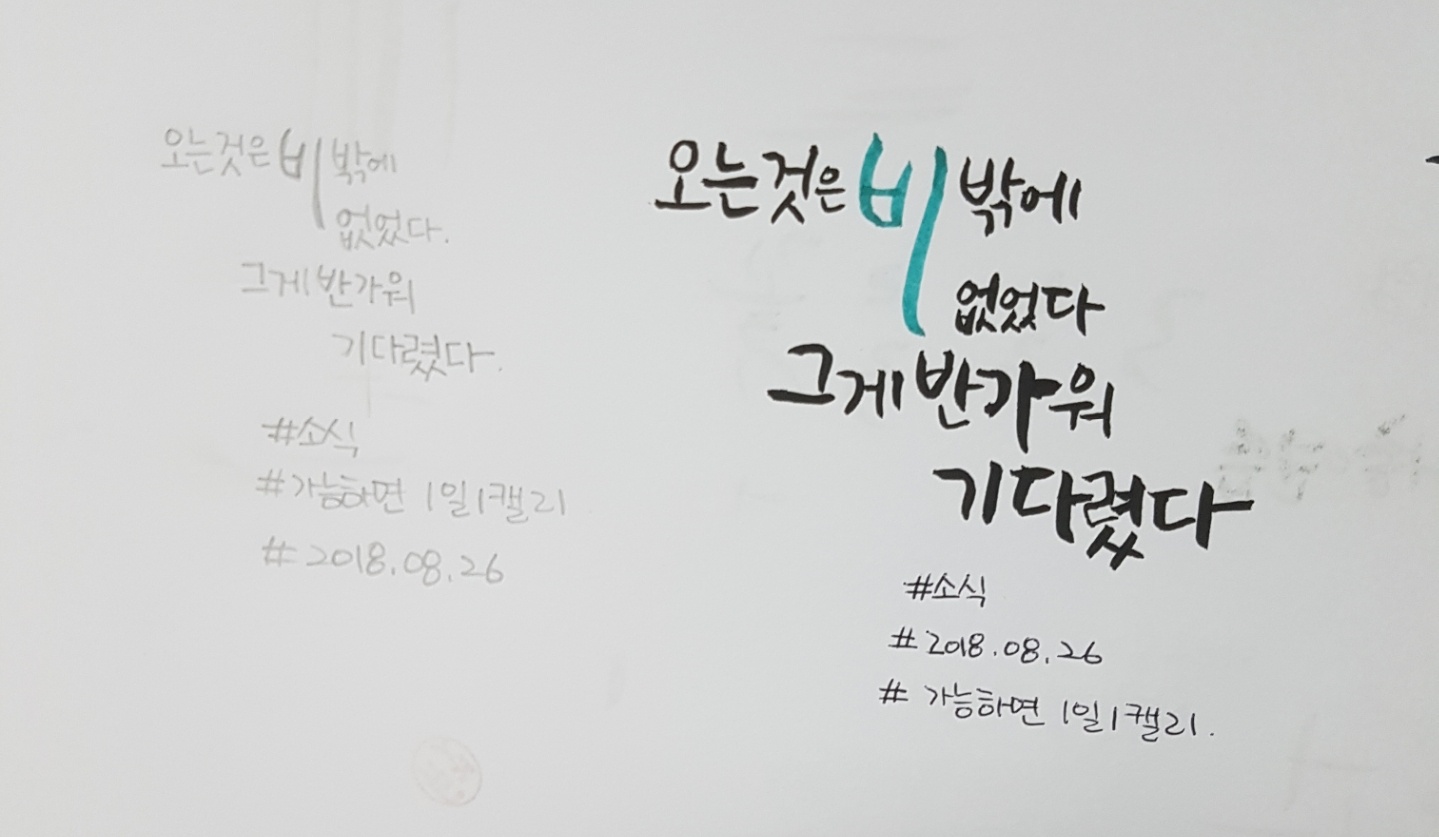 오는것은 비 밖에
없었다.
그게 반가워
기다렸다.
#소식
#가능하면 1일1캘리
#2018.08.26
오는것은 비 밖에
없었다
그게 반가워
기다렸다
#소식
#2018.08.26
# 가능하면 1일1캘리.